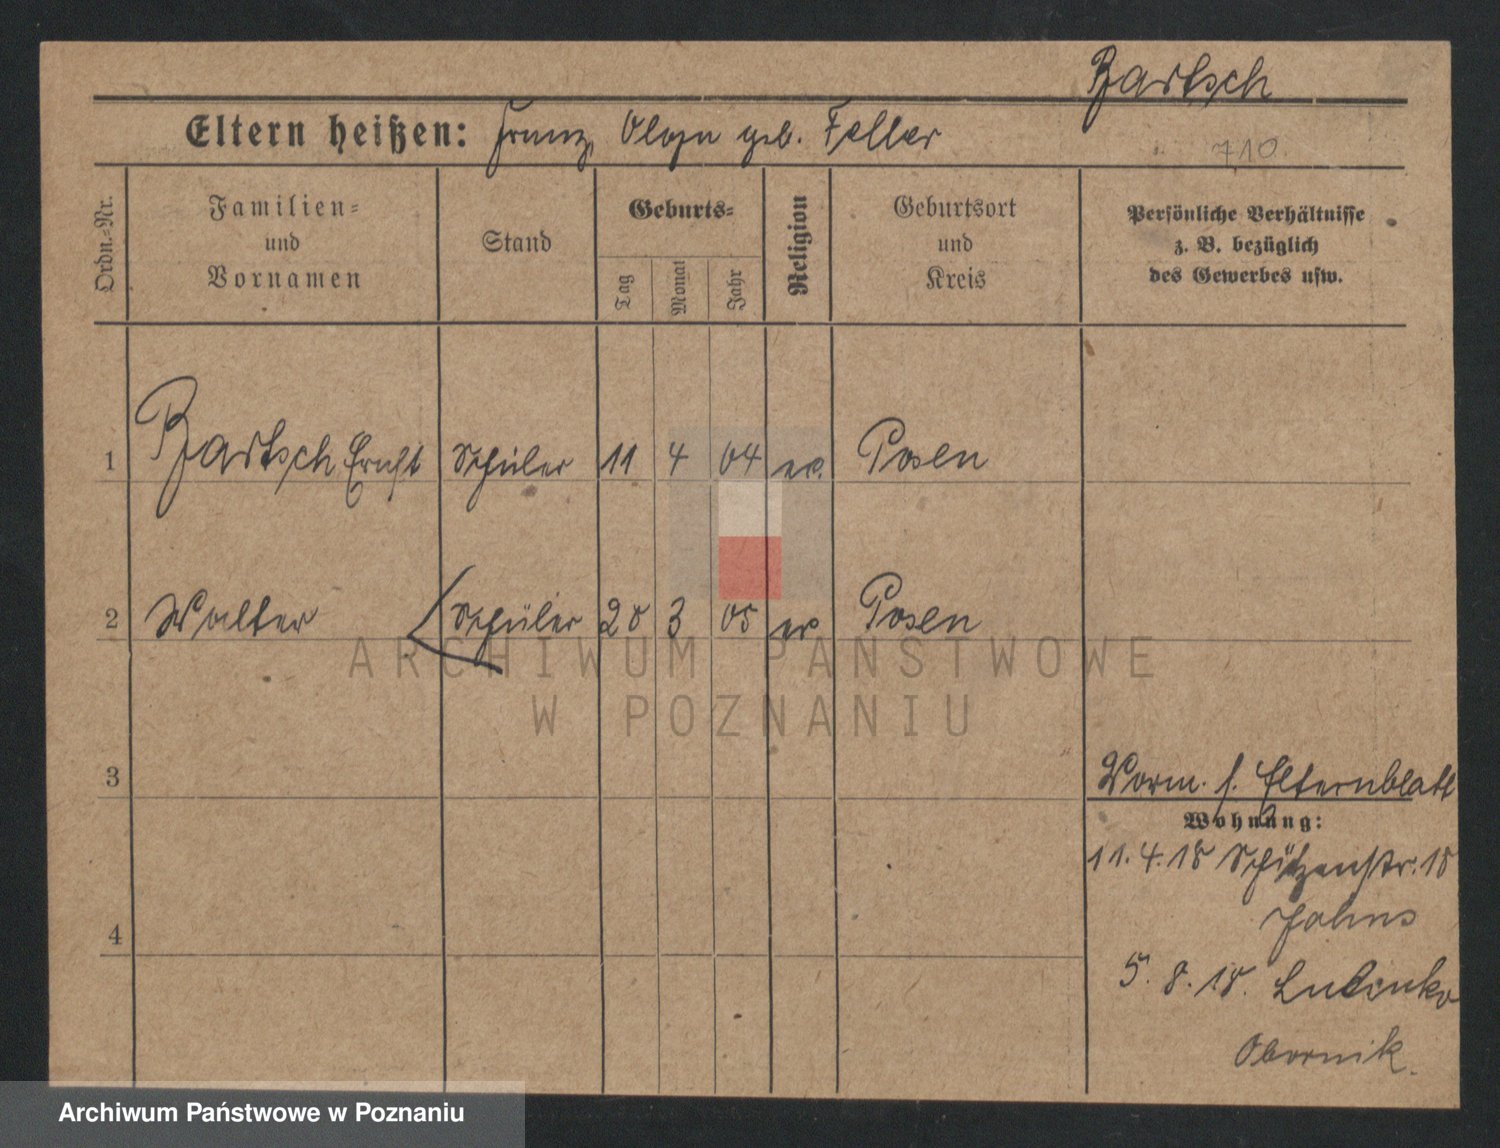 Bartsch
Eltern heißen: Franz, Olga geb. Feller
710
Ordn.-Nr.
Familien-
und
Vornamen
Stand
Geburts-
Tag
Monat
Jahr
Religion
Geburtsort
und
Kreis
Persönliche Verhältnisse
z. B. bezüglich
des Gewerbes usw.
1 Bartsch Ernst Schüler 11 4 04 ev. Posen
2 Walter Schüler 28 3 05 ev Posen
ARCHIWUM PAŃSTWOWE
W POZNANIU
3
Vorm. s. Elternblatt
Wohnung:
11.4.18 Schützenstr. 18
4
5. 8. 18.
Obornik.
Archiwum Państwowe w Poznaniu